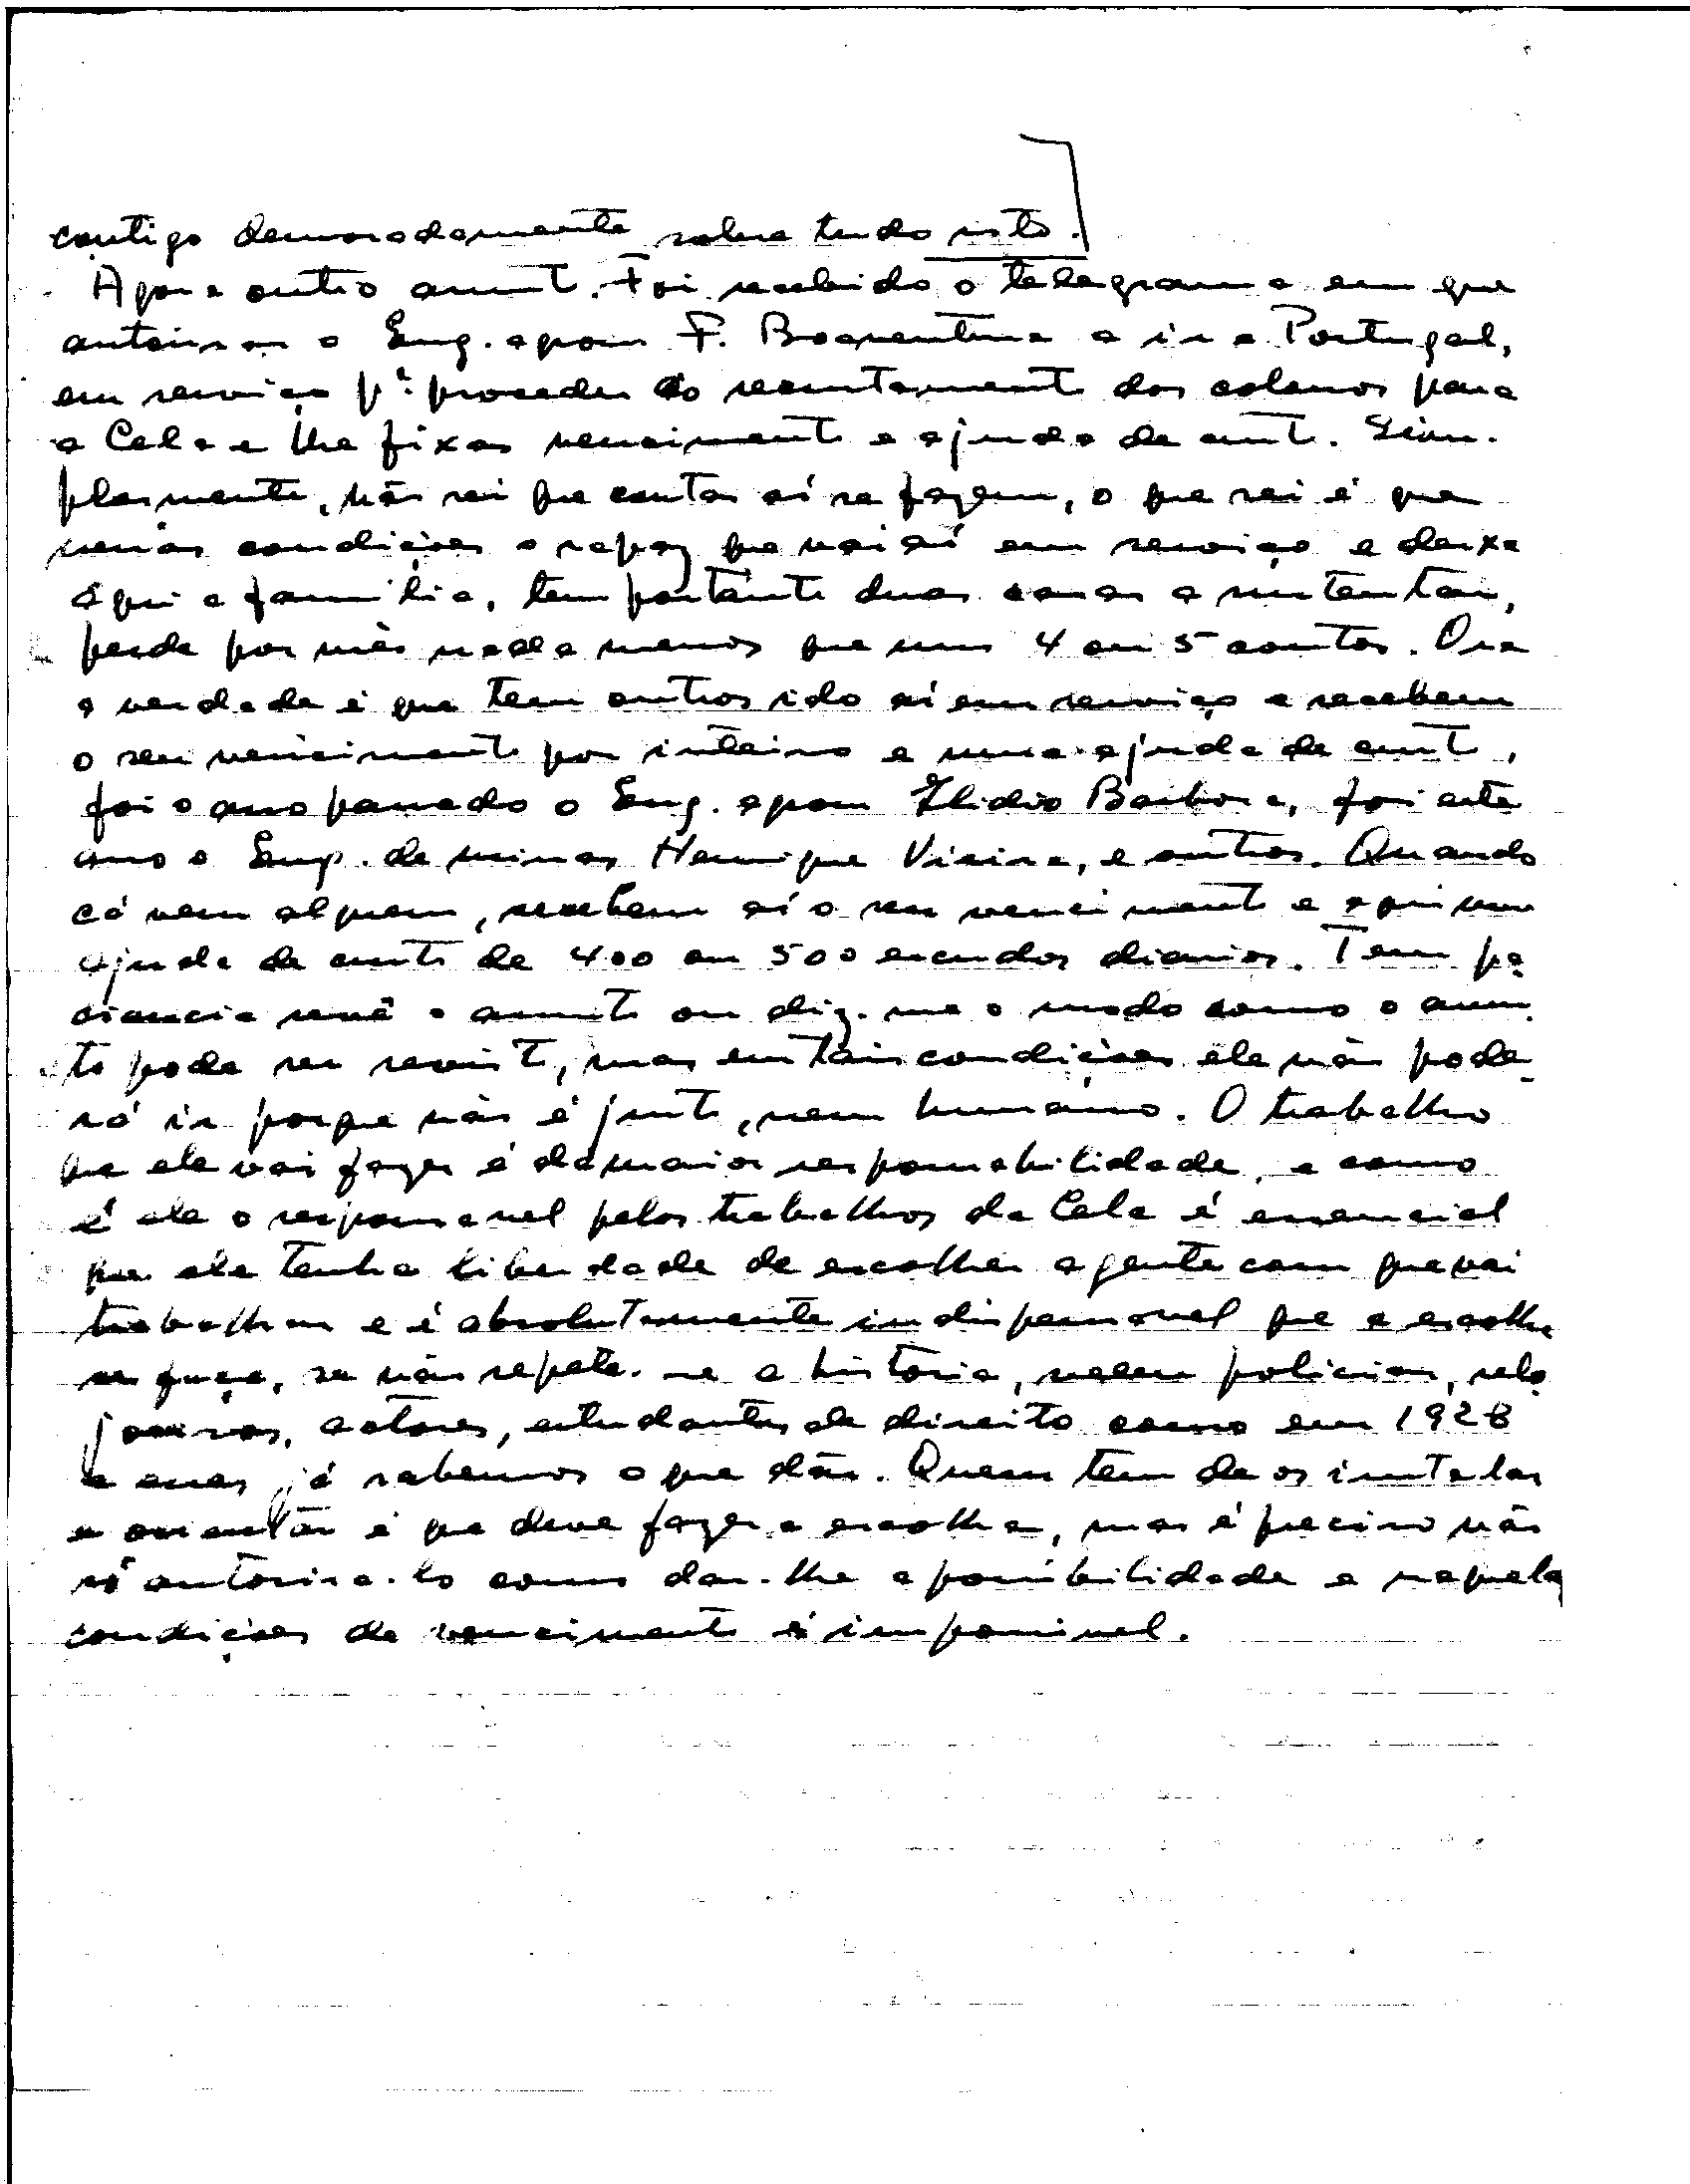 contigo demoradamente sobre tudo isto.
Agora outro assunto. Foi recebido o telegrama em que
autorizam o Eng. agrom F. Boaventura a ir a Portugal,
em serviço pª proceder ao recrutamento dos colonos para
a Cela e lhe fixas vencimento e ajuda de custo. Sim-
plesmente, não sei que contas aí se fazem, o que sei é que
nessas condições o rapaz que vai aí em serviço e deixa
aqui a familia, tem portanto duas casas a sustentar,
perde por mês nada menos que uns 4 ou 5 contos. Ora
a verdade é que tem outros ido aí em serviço e recebem
o seu vencimento por inteiro e uma ajuda de custo,
foi o ano passado o Eng. agrom Ilidio Barbosa, foi este
ano o Eng. de minas Henrique Vieira, e outros. Quando
cá vem alguem, recebem aí o seu vencimento e aqui uma
ajuda de custo de 400 ou 500 escudos diarios. Tem pa-
ciencia revê o assunto ou diz-me o modo como o assun-
to pode ser revisto, mas em tais condições ele não pode-
rá ir porque não é justo, nem humano. O trabalho
que ele vai fazer é da maior responsabilidade, e como
é ele o responsavel pelos trabalhos da Cela é essencial
que ele tenha liberdade de escolher a gente com que vai
trabalhar e é absolutamente indispensavel que a escolha
se faça, se não repete-se a historia, veem policias, relo-
joeiros, actores, estudantes de direito como em 1928
e esses já sabemos o que dão. Quem tem de os instalar
e orientar é que deve fazer a escolha, mas é preciso não
só autorisa-lo como dar-lhe a possibilidade e naquelas
condições de vencimento é impossivel.